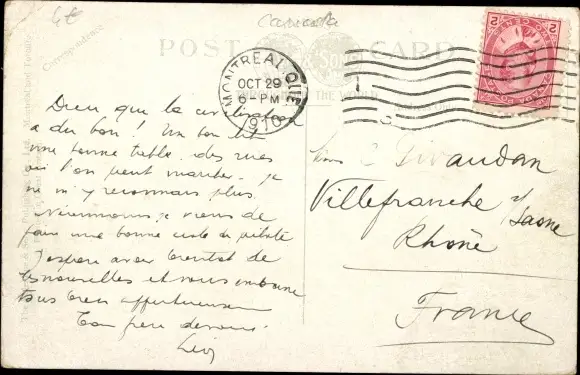 4€
Canada
POST CARD
Correspondence
MONTREAL QUE
OCT 29
6-PM
1910
THE WORLD
2 CENTS 2
Dieu que la civilisation
a du bon! Un bon lit
une bonne table. des rues
où l'on peut marcher. je
ne m'y reconnais plus
Néanmoins je viens de
faire une bonne
J'espère avoir bientôt de
tes nouvelles et vous embrasse
tous bien affectueusement
Ton père dévoué.
Léon
Givaudan
Villefranche s/ Saone
Rhône
France